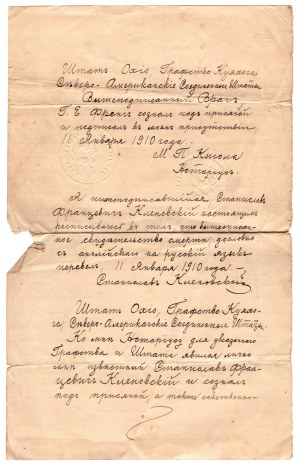 Штатъ Охіо, Графство Куяхога
Сѣверо-Американскіе Соединенные Штаты
Вышеподписанный Врачъ
Г. Е. сознался подъ присягой
и подписалъ въ моемъ присутствіи
11 Января 1910 года.
М П Кикола
Нотаріусъ.
Я нижеподписавшійся Станиславъ
Францевичъ Кленовскій настоящимъ
въ томъ, что вышеписан-
ное свидѣтельство смерти дословно
съ англійскаго на русскій языкъ
11 Января 1910 года
Станиславъ Кленовскій
Штатъ Охіо, Графство Куяхо-
га, Сѣверо-Американскіе Соединенные Штаты
Ко мнѣ Нотаріусъ для указаннаго
Графства и Штата явился лично
мнѣ извѣстный Станиславъ Фран-
цевичъ Кленовскій и сознался
подъ присягой, а также собственно-